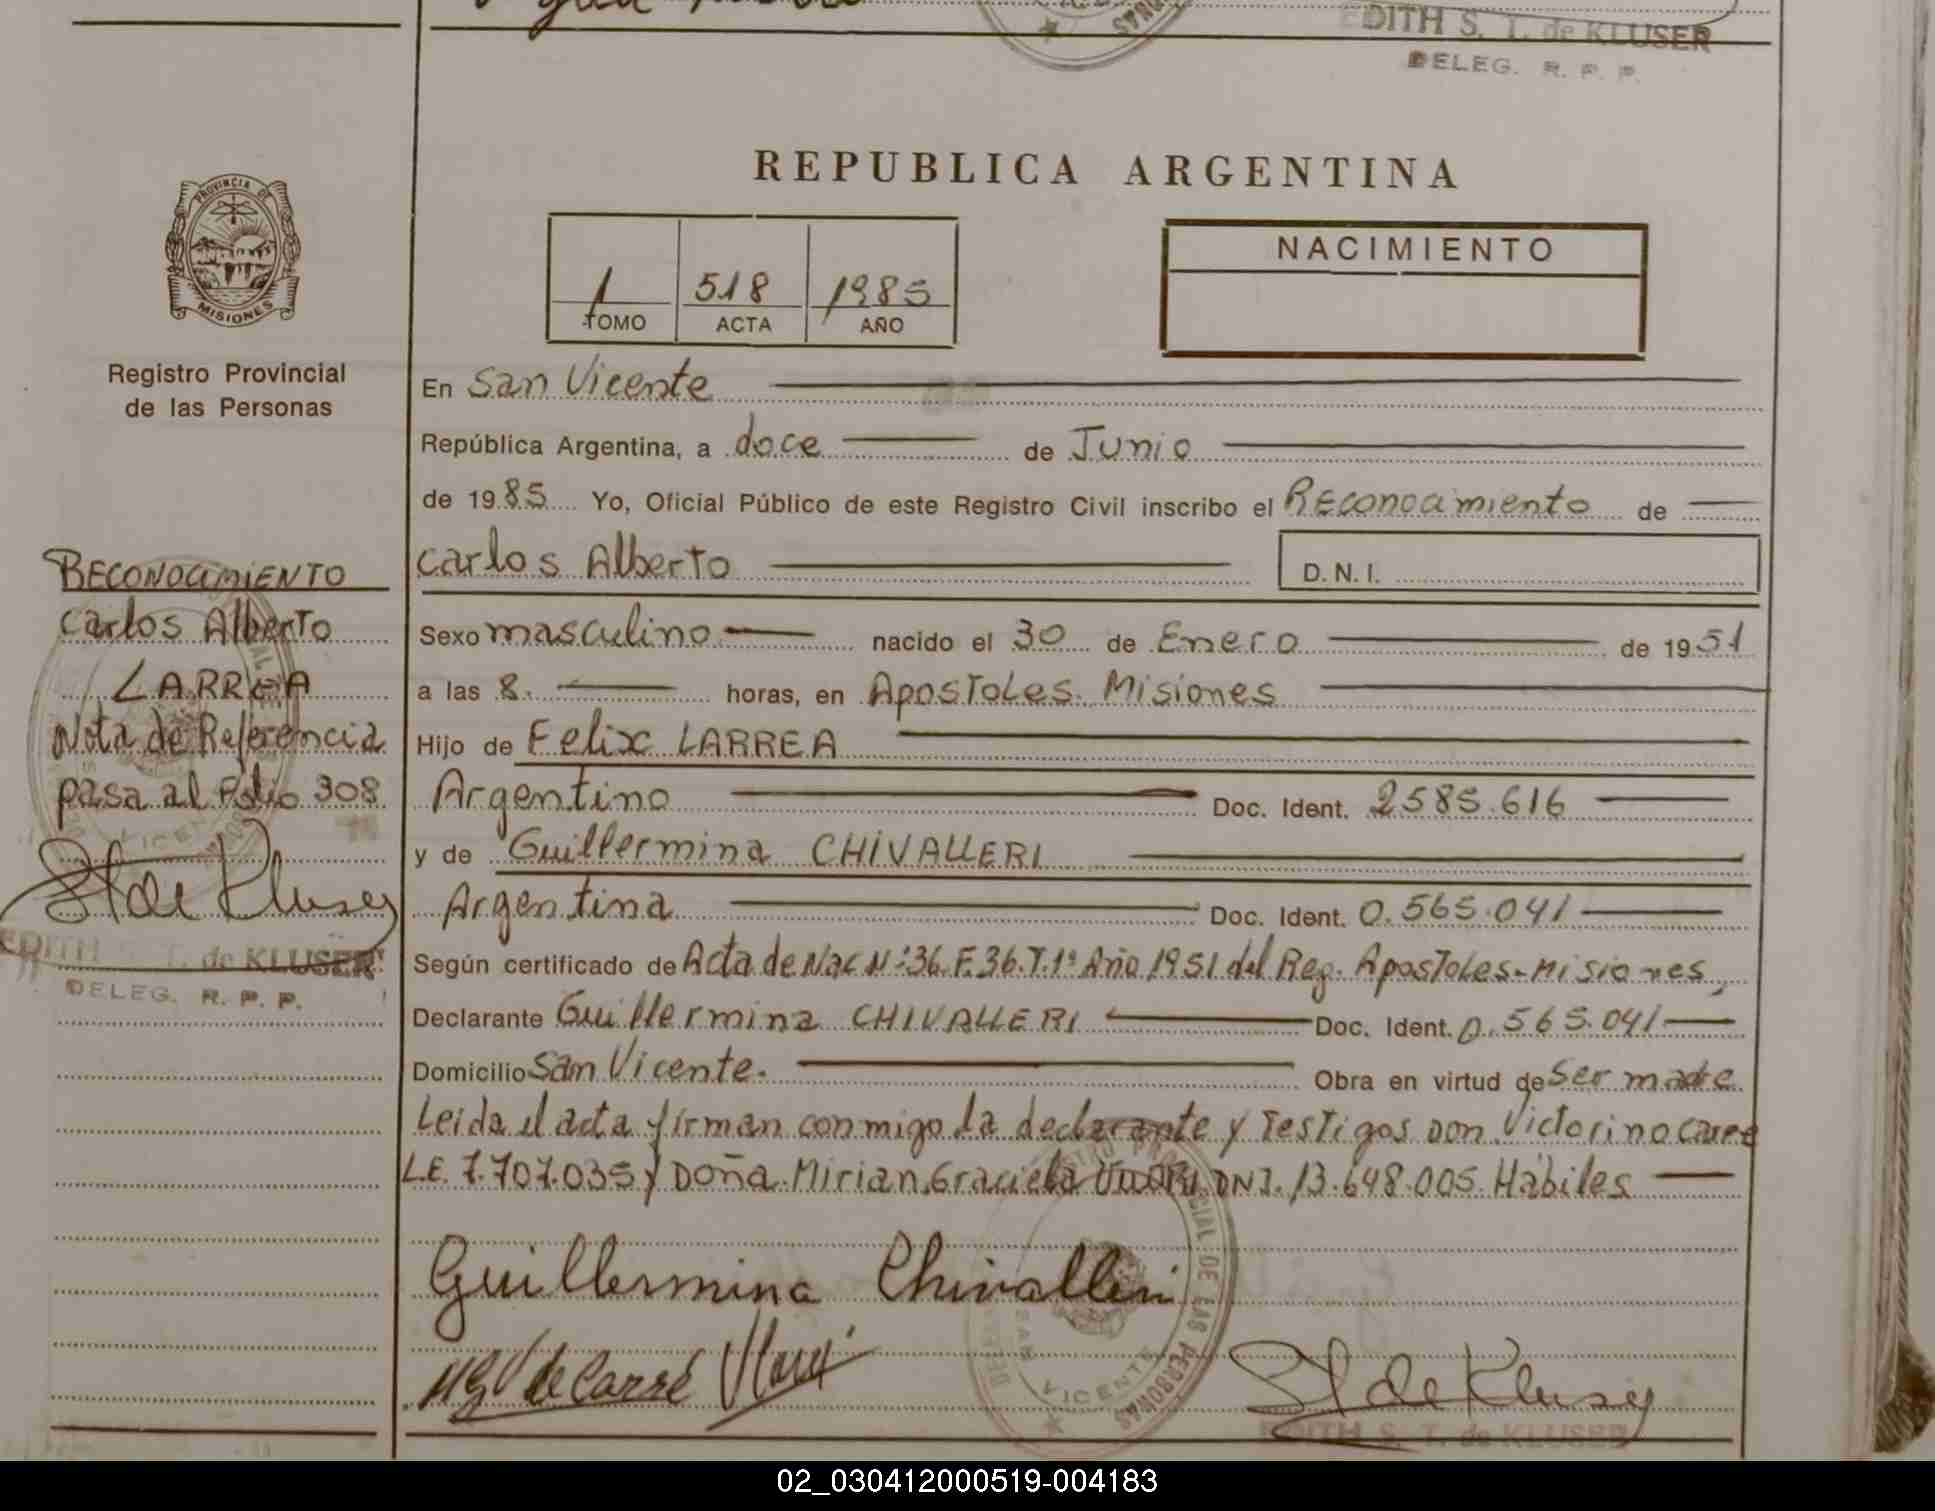 EDITH S. T. de KLUSER
DELEG. R. P. P.
REPUBLICA ARGENTINA
PROVINCIA DE
MISIONES
Registro Provincial
de las Personas
1 518 1985
TOMO ACTA AÑO
NACIMIENTO
En San Vicente
República Argentina, a doce de Junio
de 1985 Yo, Oficial Público de este Registro Civil inscribo el Reconocimiento de
Carlos Alberto
D. N. I.
Sexo masculino nacido el 30 de Enero de 1951
a las 8. horas, en Apostoles. Misiones
Hijo de Felix LARREA
Argentino Doc. Ident. 2585.616
y de Guillermina CHIVALLERI
Argentina Doc. Ident. 0.565.041
Según certificado de Acta de Nac Nº36.F.36.T.1º Año 1951 del Reg. Apostoles-Misiones,
Declarante Guillermina CHIVALLERI Doc. Ident. 0.565.041
Domicilio San Vicente. Obra en virtud de ser madre
Leida el acta firman conmigo la declarante y Testigos Don Victorino Carre
L.E. 7.707.035 y Doña Mirian Graciela DNI. 13.648.005. Hábiles
Guillermina Chivalleri
MGV de Carré
St de Kluser
EDITH S. T. de KLUSER
RECONOCIMIENTO
Carlos Alberto
LARREA
Nota de Referencia
pasa al Folio 308
St de Kluser
EDITH S. T. de KLUSER
DELEG. R. P. P.
02_030412000519-004183